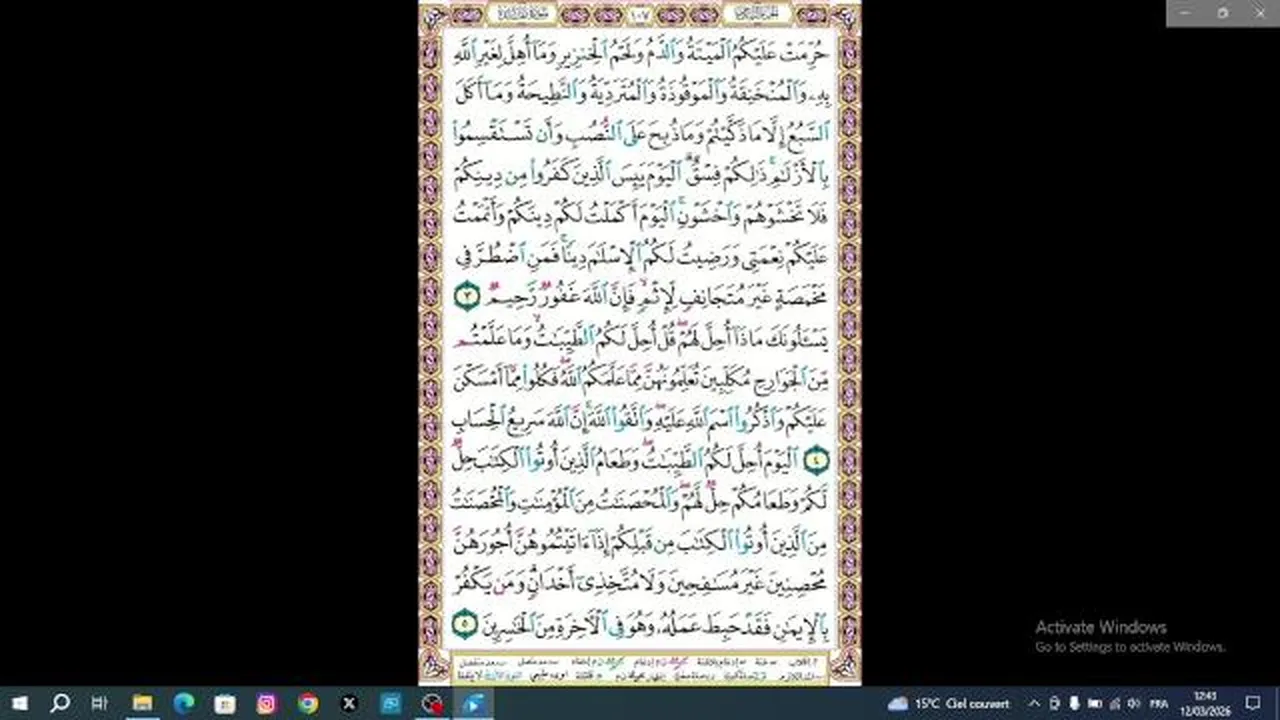 ١٠٧
حُرِّمَتْ عَلَيْكُمُ ٱلْمَيْتَةُ وَٱلدَّمُ وَلَحْمُ ٱلْخِنزِيرِ وَمَآ أُهِلَّ لِغَيْرِ ٱللَّهِ
بِهِۦ وَٱلْمُنْخَنِقَةُ وَٱلْمَوْقُوذَةُ وَٱلْمُتَرَدِّيَةُ وَٱلنَّطِيحَةُ وَمَآ أَكَلَ
ٱلسَّبُعُ إِلَّا مَا ذَكَّيْتُمْ وَمَا ذُبِحَ عَلَى ٱلنُّصُبِ وَأَن تَسْتَقْسِمُوا۟
بِٱلْأَزْلَـٰمِ ۚ ذَٰلِكُمْ فِسْقٌ ۗ ٱلْيَوْمَ يَئِسَ ٱلَّذِينَ كَفَرُوا۟ مِن دِينِكُمْ
فَلَا تَخْشَوْهُمْ وَٱخْشَوْنِ ۚ ٱلْيَوْمَ أَكْمَلْتُ لَكُمْ دِينَكُمْ وَأَتْمَمْتُ
عَلَيْكُمْ نِعْمَتِى وَرَضِيتُ لَكُمُ ٱلْإِسْلَـٰمَ دِينًا ۚ فَمَنِ ٱضْطُرَّ فِى
مَخْمَصَةٍ غَيْرَ مُتَجَانِفٍ لِّإِثْمٍ ۙ فَإِنَّ ٱللَّهَ غَفُورٌ رَّحِيمٌ ٣
يَسْـَٔلُونَكَ مَاذَآ أُحِلَّ لَهُمْ ۖ قُلْ أُحِلَّ لَكُمُ ٱلطَّيِّبَـٰتُ ۙ وَمَا عَلَّمْتُم
مِّنَ ٱلْجَوَارِحِ مُكَلِّبِينَ تُعَلِّمُونَهُنَّ مِمَّا عَلَّمَكُمُ ٱللَّهُ ۖ فَكُلُوا۟ مِمَّآ أَمْسَكْنَ
عَلَيْكُمْ وَٱذْكُرُوا۟ ٱسْمَ ٱللَّهِ عَلَيْهِ ۖ وَٱتَّقُوا۟ ٱللَّهَ ۚ إِنَّ ٱللَّهَ سَرِيعُ ٱلْحِسَابِ
٤ ٱلْيَوْمَ أُحِلَّ لَكُمُ ٱلطَّيِّبَـٰتُ ۖ وَطَعَامُ ٱلَّذِينَ أُوتُوا۟ ٱلْكِتَـٰبَ حِلٌّ
لَّكُمْ وَطَعَامُكُمْ حِلٌّ لَّهُمْ ۖ وَٱلْمُحْصَنَـٰتُ مِنَ ٱلْمُؤْمِنَـٰتِ وَٱلْمُحْصَنَـٰتُ
مِنَ ٱلَّذِينَ أُوتُوا۟ ٱلْكِتَـٰبَ مِن قَبْلِكُمْ إِذَآ ءَاتَيْتُمُوهُنَّ أُجُورَهُنَّ
مُحْصِنِينَ غَيْرَ مُسَـٰفِحِينَ وَلَا مُتَّخِذِىٓ أَخْدَانٍ ۗ وَمَن يَكْفُرْ
بِٱلْإِيمَـٰنِ فَقَدْ حَبِطَ عَمَلُهُۥ وَهُوَ فِى ٱلْـَٔاخِرَةِ مِنَ ٱلْخَـٰسِرِينَ ٥
Activate Windows
Go to Settings to activate Windows.
15°C Ciel couvert
FRA
12:43
12/03/2026